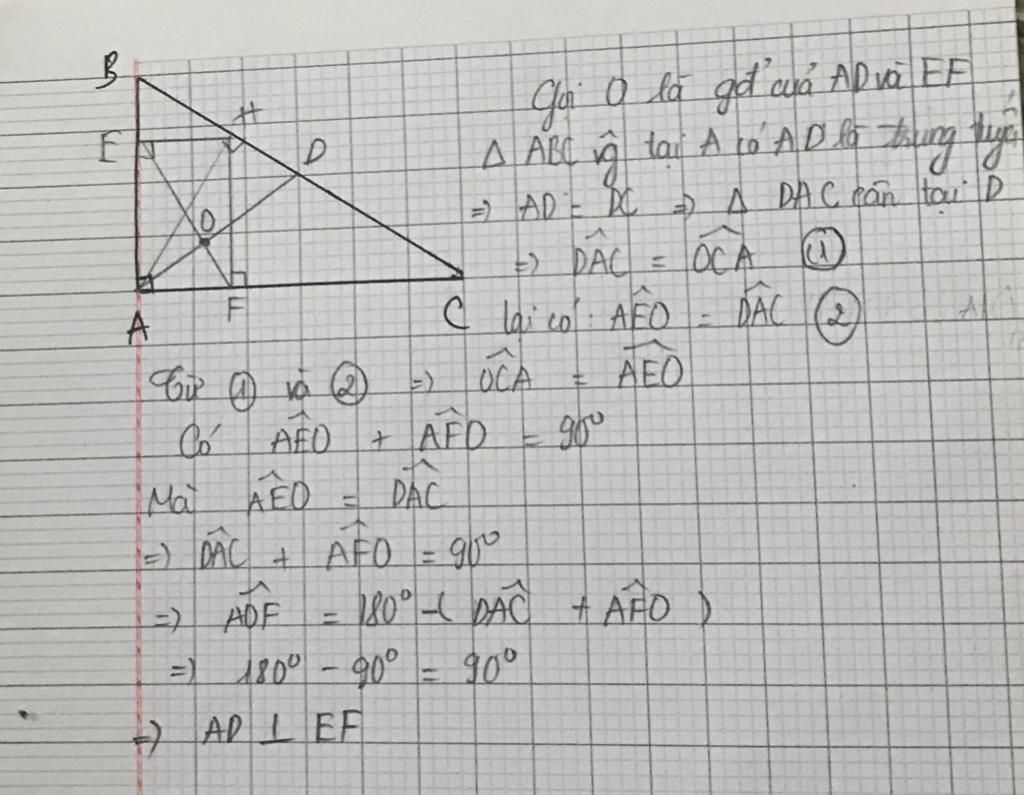 B
H
E
D
O
F
A
C
Gọi O là gđ' của AD và EF
Δ ABC vg tại A có AD là trung tuyến
=> AD = DC => Δ DAC cân tại D
=> DAC = OCA ①
lại có : AEO = DAC ②
Từ ① và ② => OCA = AEO
Có AEO + AFO = 90°
Mà AEO = DAC
=> DAC + AFO = 90°
=> AOF = 180° - ( DAC + AFO )
=> 180° - 90° = 90°
=> AD ⊥ EF